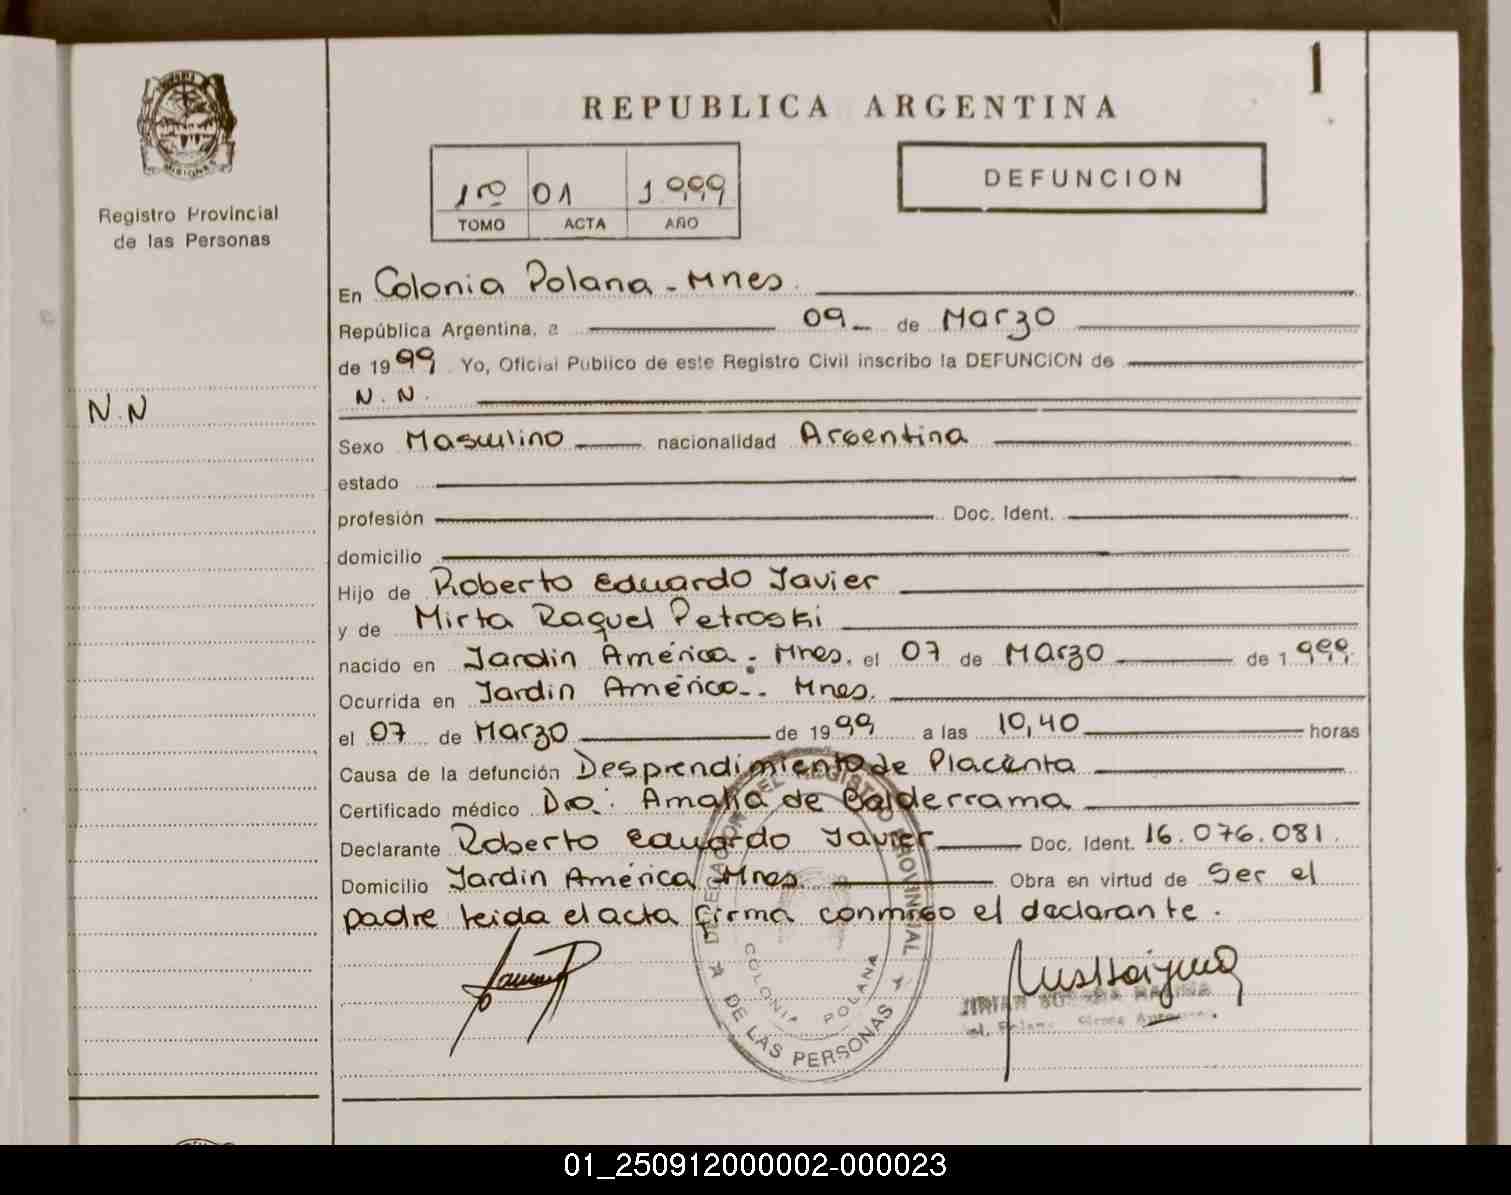 1
REPUBLICA ARGENTINA
MISIONES
Registro Provincial
de las Personas
1ro 01 1999
TOMO ACTA AÑO
DEFUNCION
En Colonia Polana - Mnes.
República Argentina, a 09 de Marzo
de 1999 Yo, Oficial Publico de este Registro Civil inscribo la DEFUNCION de
N.N
N. N.
Sexo Masculino nacionalidad Argentina
estado
profesión Doc. Ident.
domicilio
Hijo de Roberto Eduardo Javier
y de Mirta Raquel Petroski
nacido en Jardin América - Mnes. el 07 de Marzo de 1999
Ocurrida en Jardin América - Mnes.
el 07 de Marzo de 1999 a las 10,40 horas
Causa de la defunción Desprendimiento de Placenta
Certificado médico Dra. Amalia de Balderrama
Declarante Roberto Eduardo Javier Doc. Ident. 16.076.081
Domicilio Jardin América Mnes. Obra en virtud de Ser el
padre leida el acta firma conmigo el declarante.
DELEGACION DEL REGISTRO PROVINCIAL
DE LAS PERSONAS
COLONIA POLANA
01_250912000002-000023